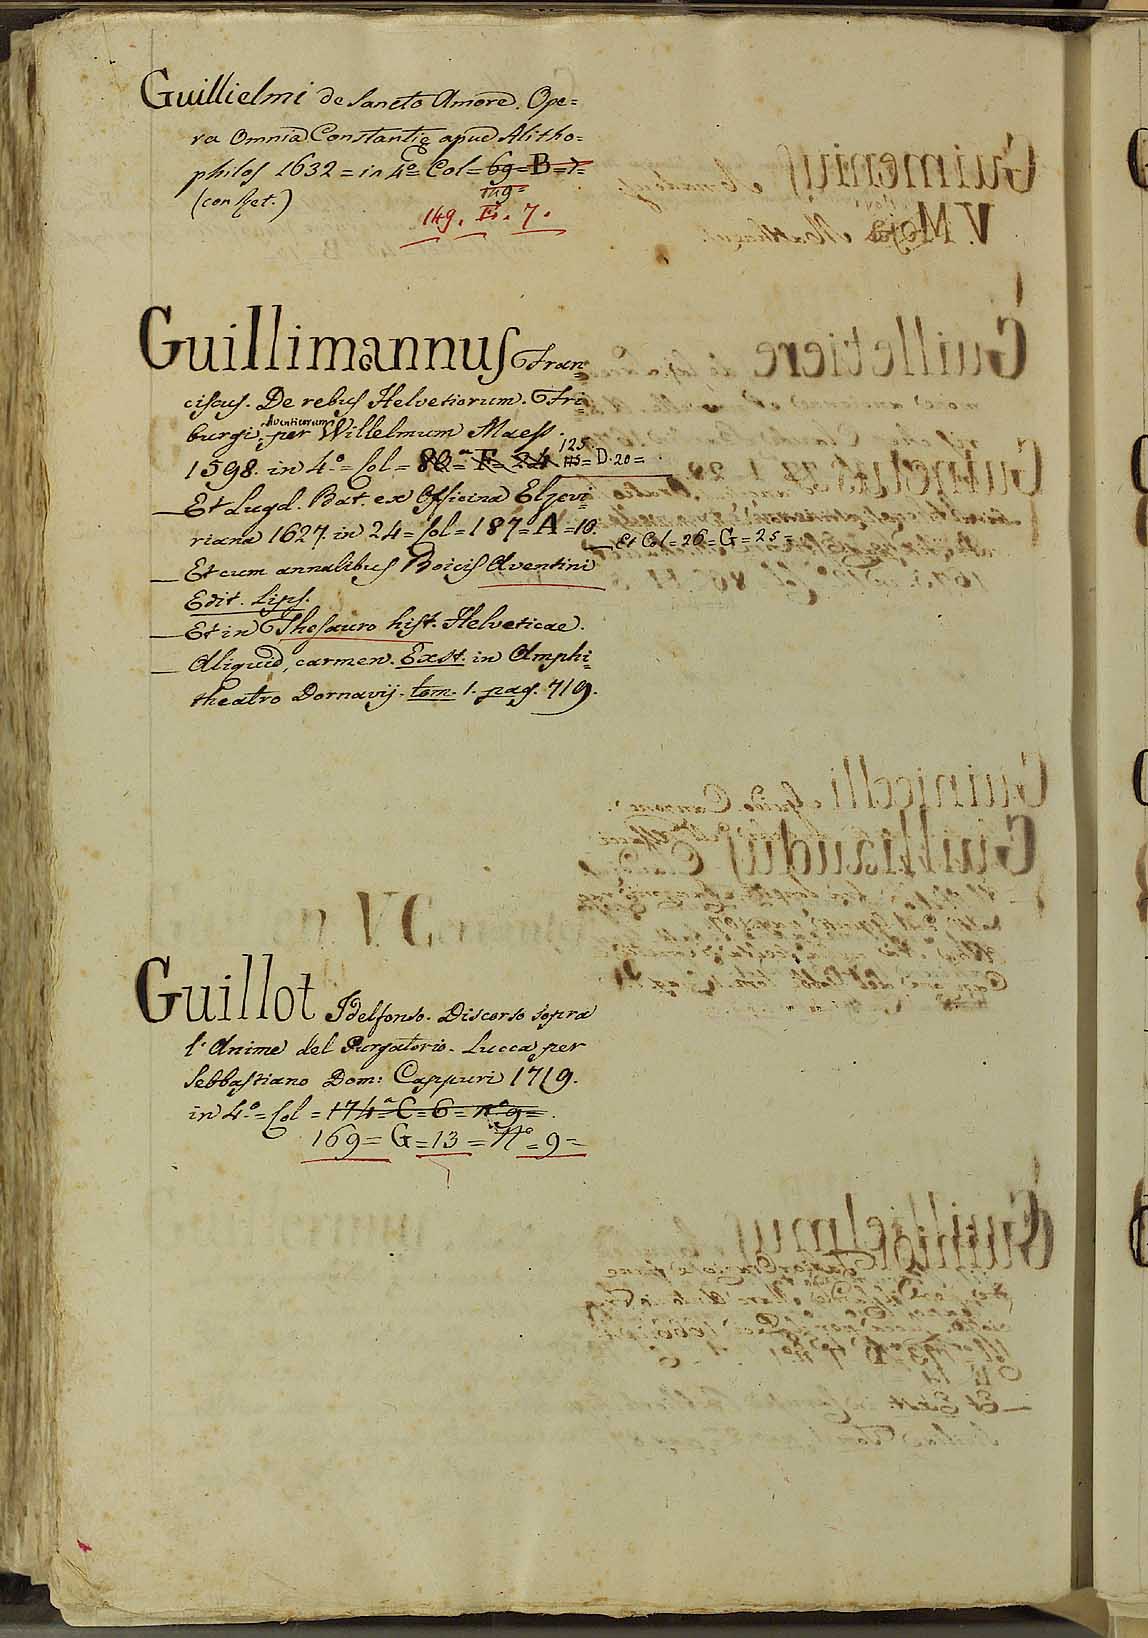 Guillielmi de Sancto Amore. Ope=
ra Omnia Constantię apud Alitho=
philos 1632 = in 4º = Col = 69 = B = 7 =
149 =
(con Let.)
149. F. 7.
Guillimannus Fran=
ciscus. De rebus Helvetiorum. Fri=
burgi Aventicorum per Willelmum Maess.
1598. in 4.º = Col = 80 = F = 24 115 = D. 20 =
125.
— Et Lugd. Bat. ex Officina Elzevi=
riana 1627. in 24 = Col = 187 = A = 10.
— Et Col = 26 = G = 25 =
— Et cum annalibus Boicis Aventini
Edit. Lips.
— Et in Thesauro hist. Helveticae.
— Aliquid, carmen. Exst. in Amphi=
theatro Dornavij. tom. 1. pag. 719.
Guillot Idelfonso. Discorso sopra
l'Anime del Purgatorio. Lucca per
Sebbastiano Dom: Cappuri 1719.
in 4.º = Col = 174 = C = 6 = nº 9 =.
169 = G = 13 = Nº = 9 =